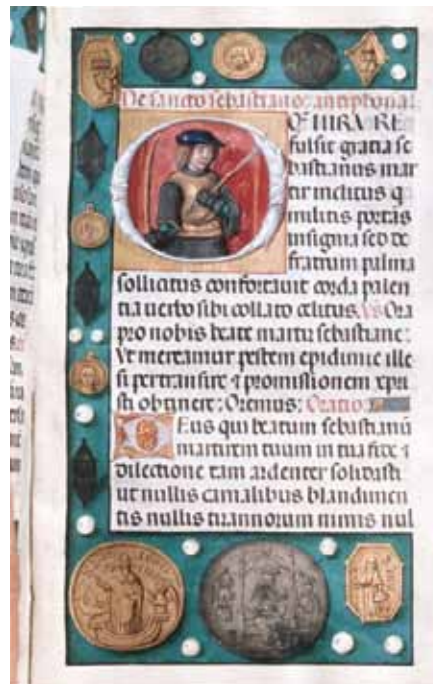 De sancto sebastiano: antiphona:
O Q MIRA RE
fulsit gratia se
bastianus mar
tir inclitus q
militis portas
insignia sed de
fratrum palma
sollicitus confortavit corda palen
tia verbo sibi collato celitus. Vs Ora
pro nobis beate martir sebastiane:
Ut mereamur pestem epidimie ille
si pertransire ⁊ promissionem xpri
sti obtinere: Oremus: Oratio
Deus qui beatum sebastianũ
martirem tuum in tua fide ⁊
dilectione tam ardenter solidasti
ut nullis carnalibus blandimen
tis nullis tirannorum minis nul